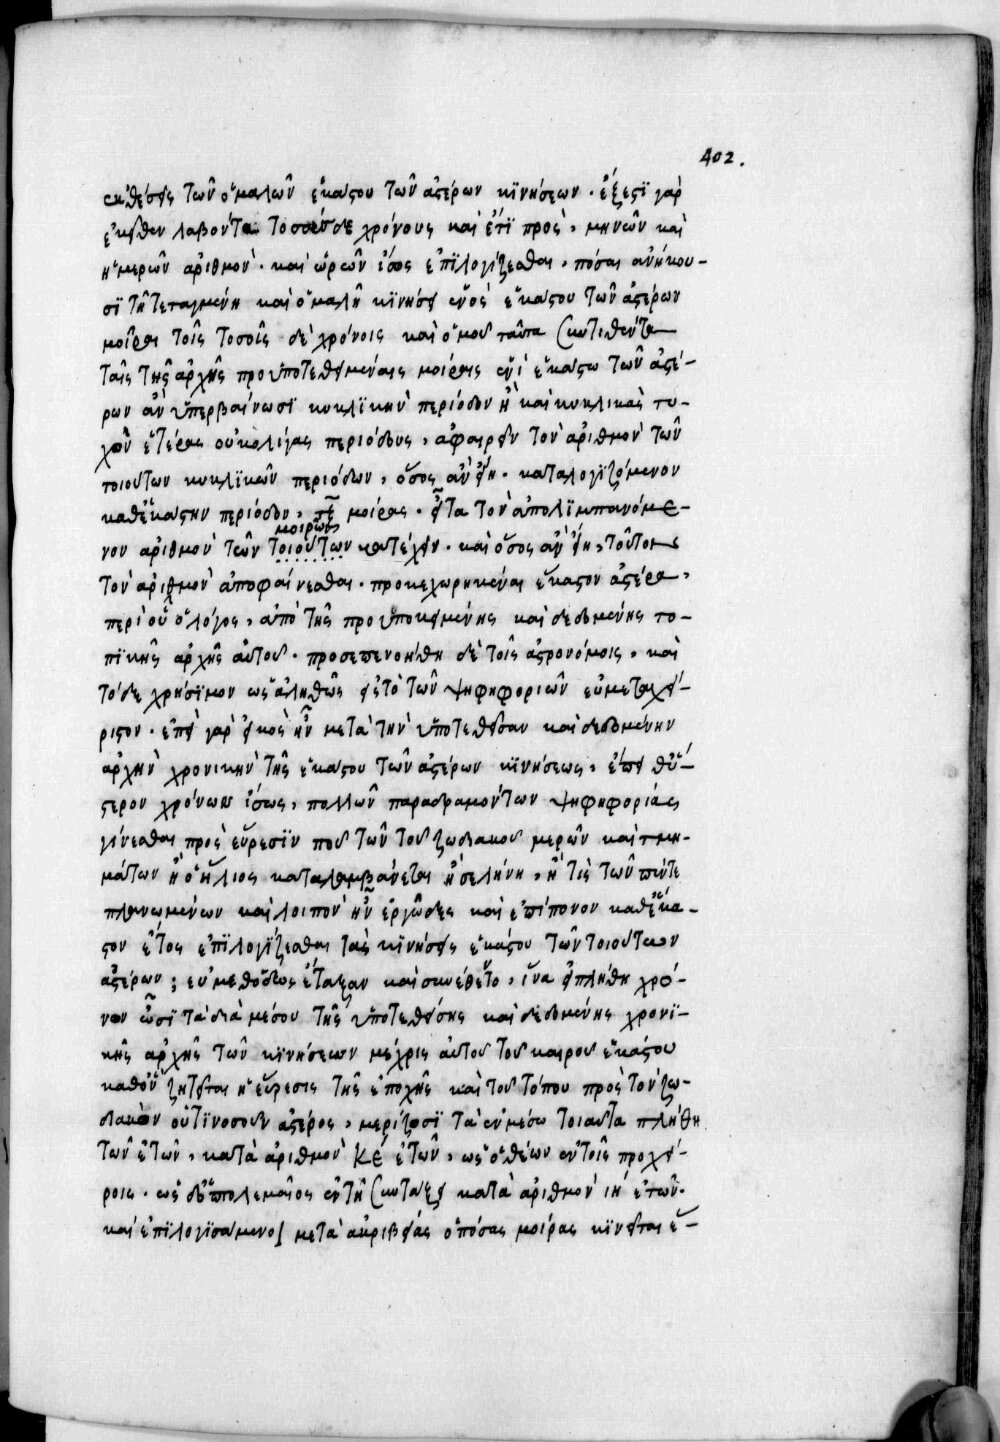 402.
ἐκθέσεις τῶν ὁμαλῶν ἑκάστου τῶν ἀστέρων κϊνήσεων · ἔξεστϊ γὰρ
ἐκεῖθεν λαβόντα τοσούσδε χρόνους καὶ ἔτϊ πρὸς, μηνῶν καὶ
ἡμερῶν ἀριθμὸν · καὶ ὡρῶν ἴσως ἐπϊλογίζεσθαι, πόσαι ἀνήκου-
σϊ τῆ τεταγμένη καὶ ὁμαλῆ κϊνήσει ἑνὸς ἑκάστου τῶν ἀστέρων
μοῖραι τοῖς τοσοῖς δὲ χρόνοις καὶ ὁμοῦ ταῦτα συντιθέντα
ταῖς τῆς ἀρχῆς προϋποτεθειμέναις μοίραις ἑνὶ ἑκάστω τῶν ἀστέ-
ρων ἂν ὑπερβαίνωσϊ κυκλϊκὴν περίοδον ἢ καὶ κυκλικὰς τυ-
χὸν ἑτέρας οὐκ ὀλίγας περιόδους, ἀφαιρεῖν τὸν ἀριθμὸν τῶν
τοιούτων κυκλϊκῶν περιόδων, ὅσος ἂν εἴη · καταλογϊζόμενον
καθ' ἑκάστην περίοδον, τξ μοίρας · εἶτα τὸν ἀπολϊμπανόμε-
νον ἀριθμὸν τῶν τοιούτων μοιρῶν κατέχειν · καὶ ὅσος ἂν εἴη, τοῦτον
τὸν ἀριθμὸν ἀποφαίνεσθαι · προκεχωρηκέναι ἕκαστον ἀστέρα,
περὶ οὗ ὁ λόγος, ἀπὸ τῆς προϋποκειμένης καὶ δεδομένης το-
πϊκῆς ἀρχῆς αὐτοῦ · προσεπενοήθη δὲ τοῖς ἀστρονόμοις, καὶ
τόδε χρήσϊμον ὡς ἀληθῶς εἰς τὸ τῶν ψηφηφοριῶν εὐμεταχεί-
ριστον · ἐπεὶ γὰρ εἰκὸς ἦν μετὰ τὴν ὑποτεθεῖσαν καὶ δεδομένην
ἀρχὴν χρονικὴν τῆς ἑκάστου τῶν ἀστέρων κϊνήσεως, ἐπεὶ θὕ-
στερον χρόνων ἴσως, πολλῶν παραδραμόντων ψηφηφορίας
γίνεσθαι πρὸς εὕρεσϊν ποῦ τῶν τοῦ ζωδιακοῦ μερῶν καὶ τμη-
μάτων ἢ ὁ ἥλιος καταλαμβάνεται ἢ σελήνη, ἤ τις τῶν πέντε
πλανωμένων καὶ λοιπὸν ἦν ἐργῶδες καὶ ἐπίπονον καθ' ἕκα-
στον ἔτος ἐπϊλογίζεσθαι τὰς κϊνήσεις ἑκάστου τῶν τοιούτων
ἀστέρων ; εὐμεθόδως ἔταξαν καὶ συνέθεντο, ἵνα εἰ πλήθη χρό-
νων ὦσϊ τὰ διὰ μέσου τῆς ὑποτεθείσης καὶ δεδομένης χρονϊ-
κῆς ἀρχῆς τῶν κϊνήσεων μέχρις αὐτοῦ τοῦ καιροῦ ἑκάστου
καθ' ὃν ζητεῖται ἡ εὕρεσις τῆς ἐποχῆς καὶ τοῦ τόπου πρὸς τὸν ζω-
διακὸν οὑτϊνοσοῦν ἀστέρος, μερίζωσϊ τὰ ἐν μέσω τοιαῦτα πλήθη
τῶν ἐτῶν, κατὰ ἀριθμὸν κε ἐτῶν, ὡς ὁ θέων ἐν τοῖς προχεί-
ροις · ὡς δ' ὁ πτολεμαῖος ἐν τῆ συντάξει κατὰ ἀριθμὸν ιη ἐτῶν·
καὶ ἐπϊλογϊσάμενοι μετὰ ἀκριβείας ὁπόσας μοίρας κϊνεῖται ἕ-